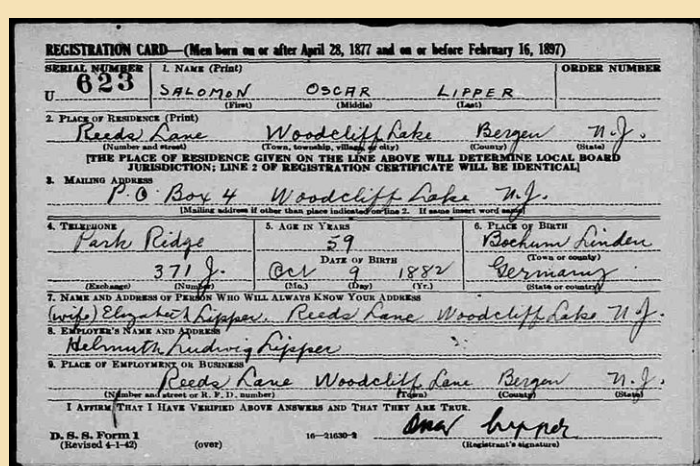 REGISTRATION CARD—(Men born on or after April 28, 1877 and on or before February 16, 1897)
SERIAL NUMBER 1. NAME (Print) ORDER NUMBER
U 623 SALOMON OSCAR LIPPER
(First) (Middle) (Last)
2. PLACE OF RESIDENCE (Print)
Reeds Lane Woodcliff Lake Bergen N.J.
(Number and street) (Town, township, village, or city) (County) (State)
[THE PLACE OF RESIDENCE GIVEN ON THE LINE ABOVE WILL DETERMINE LOCAL BOARD
JURISDICTION; LINE 2 OF REGISTRATION CERTIFICATE WILL BE IDENTICAL]
3. MAILING ADDRESS
P.O. Box 4 Woodcliff Lake N.J.
[Mailing address if other than place indicated on line 2. If same insert word same]
4. TELEPHONE 5. AGE IN YEARS 6. PLACE OF BIRTH
Park Ridge 59 Bochum Linden
DATE OF BIRTH (Town or county)
371 J. Oct 9 1882 Germany
(Exchange) (Number) (Mo.) (Day) (Yr.) (State or country)
7. NAME AND ADDRESS OF PERSON WHO WILL ALWAYS KNOW YOUR ADDRESS
(wife) Elizabeth Lipper. Reeds Lane Woodcliff Lake N.J.
8. EMPLOYER'S NAME AND ADDRESS
Helmuth Ludwig Lipper
9. PLACE OF EMPLOYMENT OR BUSINESS
Reeds Lane Woodcliff Lane Bergen N.J.
(Number and street or R. F. D. number) (Town) (County) (State)
I AFFIRM THAT I HAVE VERIFIED ABOVE ANSWERS AND THAT THEY ARE TRUE.
Oscar Lipper
D. S. S. Form 1
(Revised 4-1-42) (over) 16—21630-2 (Registrant's signature)